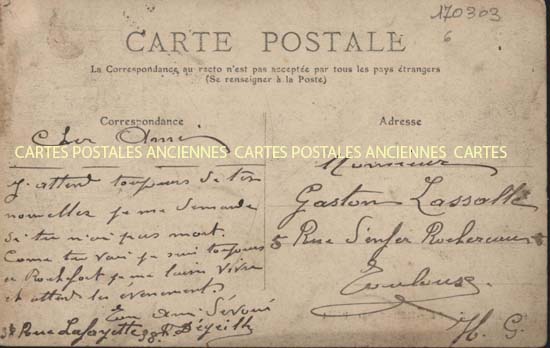 170303
6
CARTE POSTALE
La Correspondance au recto n'est pas acceptée par tous les pays étrangers
(Se renseigner à la Poste)
Correspondance
Cher Ami
CARTES POSTALES ANCIENNES CARTES POSTALES ANCIENNES CARTES
J'attend toujours de tes
nouvelles je me demande
si tu n'ai pas mort.
Come tu voi je sui toujours
a Rochefort je me laisse vivre
et attend les évènements
Ton ami Dévoué
38 Rue Lafayette 38
Adresse
Monsieur
Gaston Lassalle
5 Rue
Toulouse
H. G.